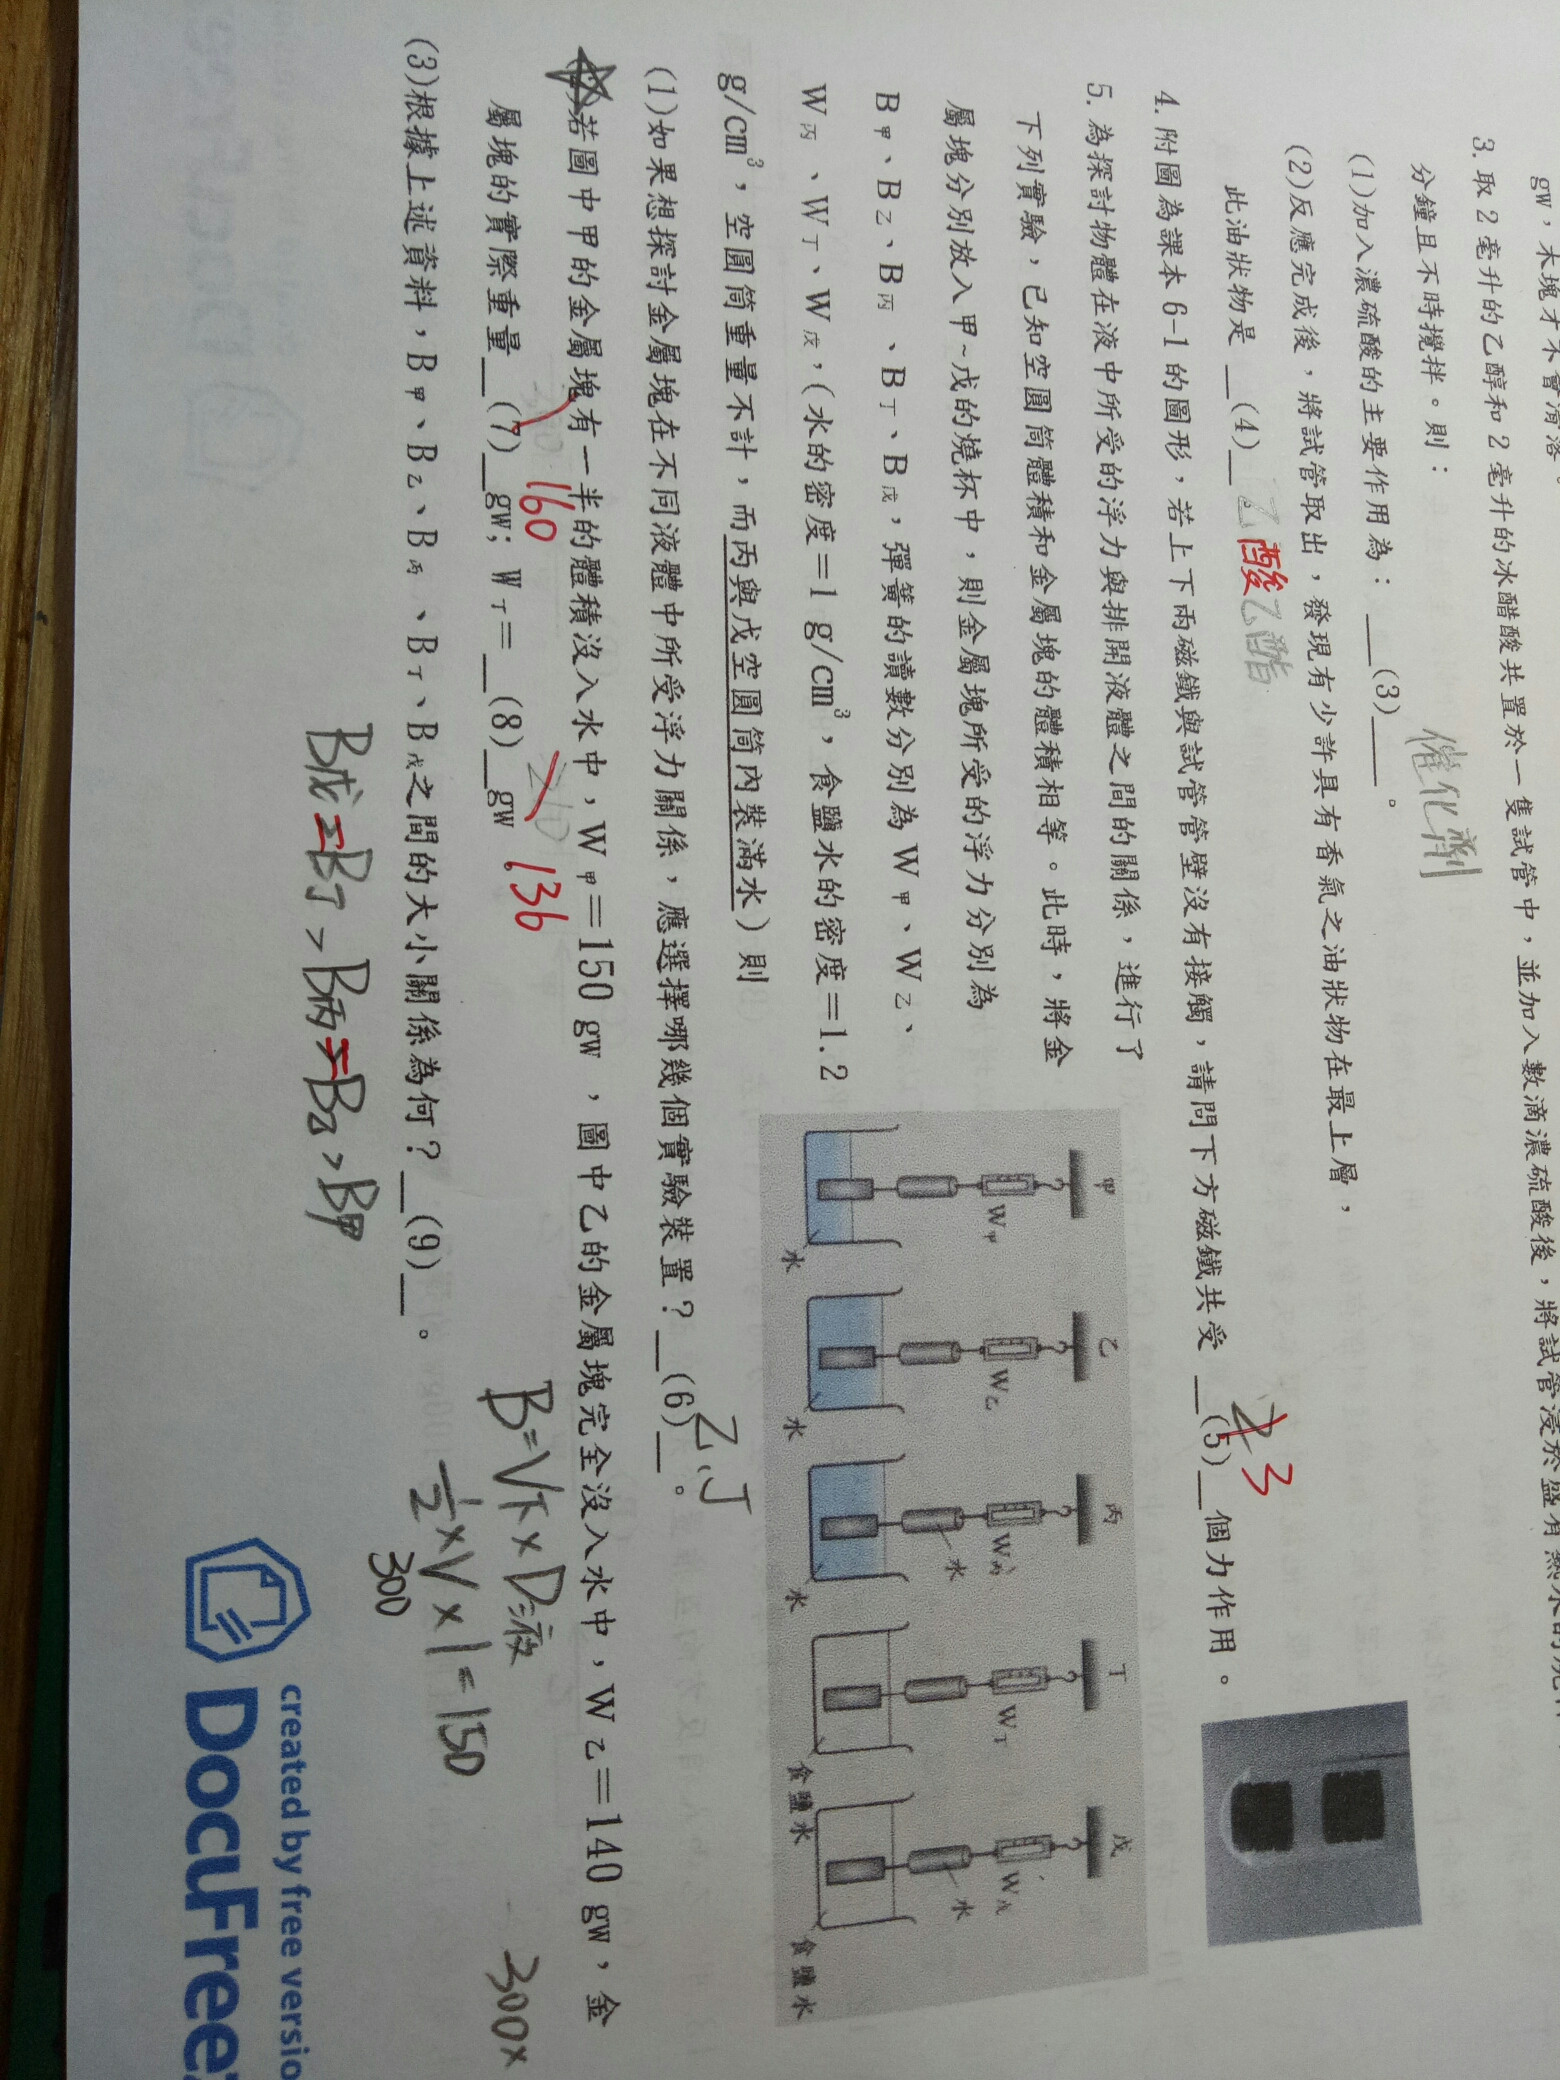 gw，木塊才不會滑落。
3. 取 2 毫升的乙醇和 2 毫升的冰醋酸共置於一隻試管中，並加入數滴濃硫酸後，將試管浸於盛有熱水的燒杯
分鐘且不時攪拌。則：
(1)加入濃硫酸的主要作用為：___(3)___。
催化劑
(2)反應完成後，將試管取出，發現有少許具有香氣之油狀物在最上層，
此油狀物是 __(4)__
乙酸乙酯
4. 附圖為課本 6-1 的圖形，若上下兩磁鐵與試管管壁沒有接觸，請問下方磁鐵共受 __(5)__個力作用。
2 3
5. 為探討物體在液中所受的浮力與排開液體之間的關係，進行了
下列實驗，已知空圓筒體積和金屬塊的體積相等。此時，將金
屬塊分別放入甲~戊的燒杯中，則金屬塊所受的浮力分別為
B甲、B乙、B丙、B丁、B戊，彈簧的讀數分別為 W甲、W乙、
W丙、W丁、W戊，(水的密度＝1 g/cm³，食鹽水的密度＝1.2
g/cm³，空圓筒重量不計，而丙與戊空圓筒內裝滿水）則
甲 乙 丙 丁 戊
W甲 W乙 W丙 W丁 W戊
水 水
水 水 水 食鹽水 食鹽水
(1)如果想探討金屬塊在不同液體中所受浮力關係，應選擇哪幾個實驗裝置？__(6)__。
乙、丁
若圖中甲的金屬塊有一半的體積沒入水中，W甲＝150 gw，圖中乙的金屬塊完全沒入水中，W乙＝140 gw，金
屬塊的實際重量__(7)__gw；W丁＝__(8)__gw
160
136
(3)根據上述資料，B甲、B乙、B丙、B丁、B戊之間的大小關係為何？__(9)__。
B戊=B丁>B丙=B乙>B甲
B=V下×D液
½×V×1=150
300
300×
created by free versio
DocuFree